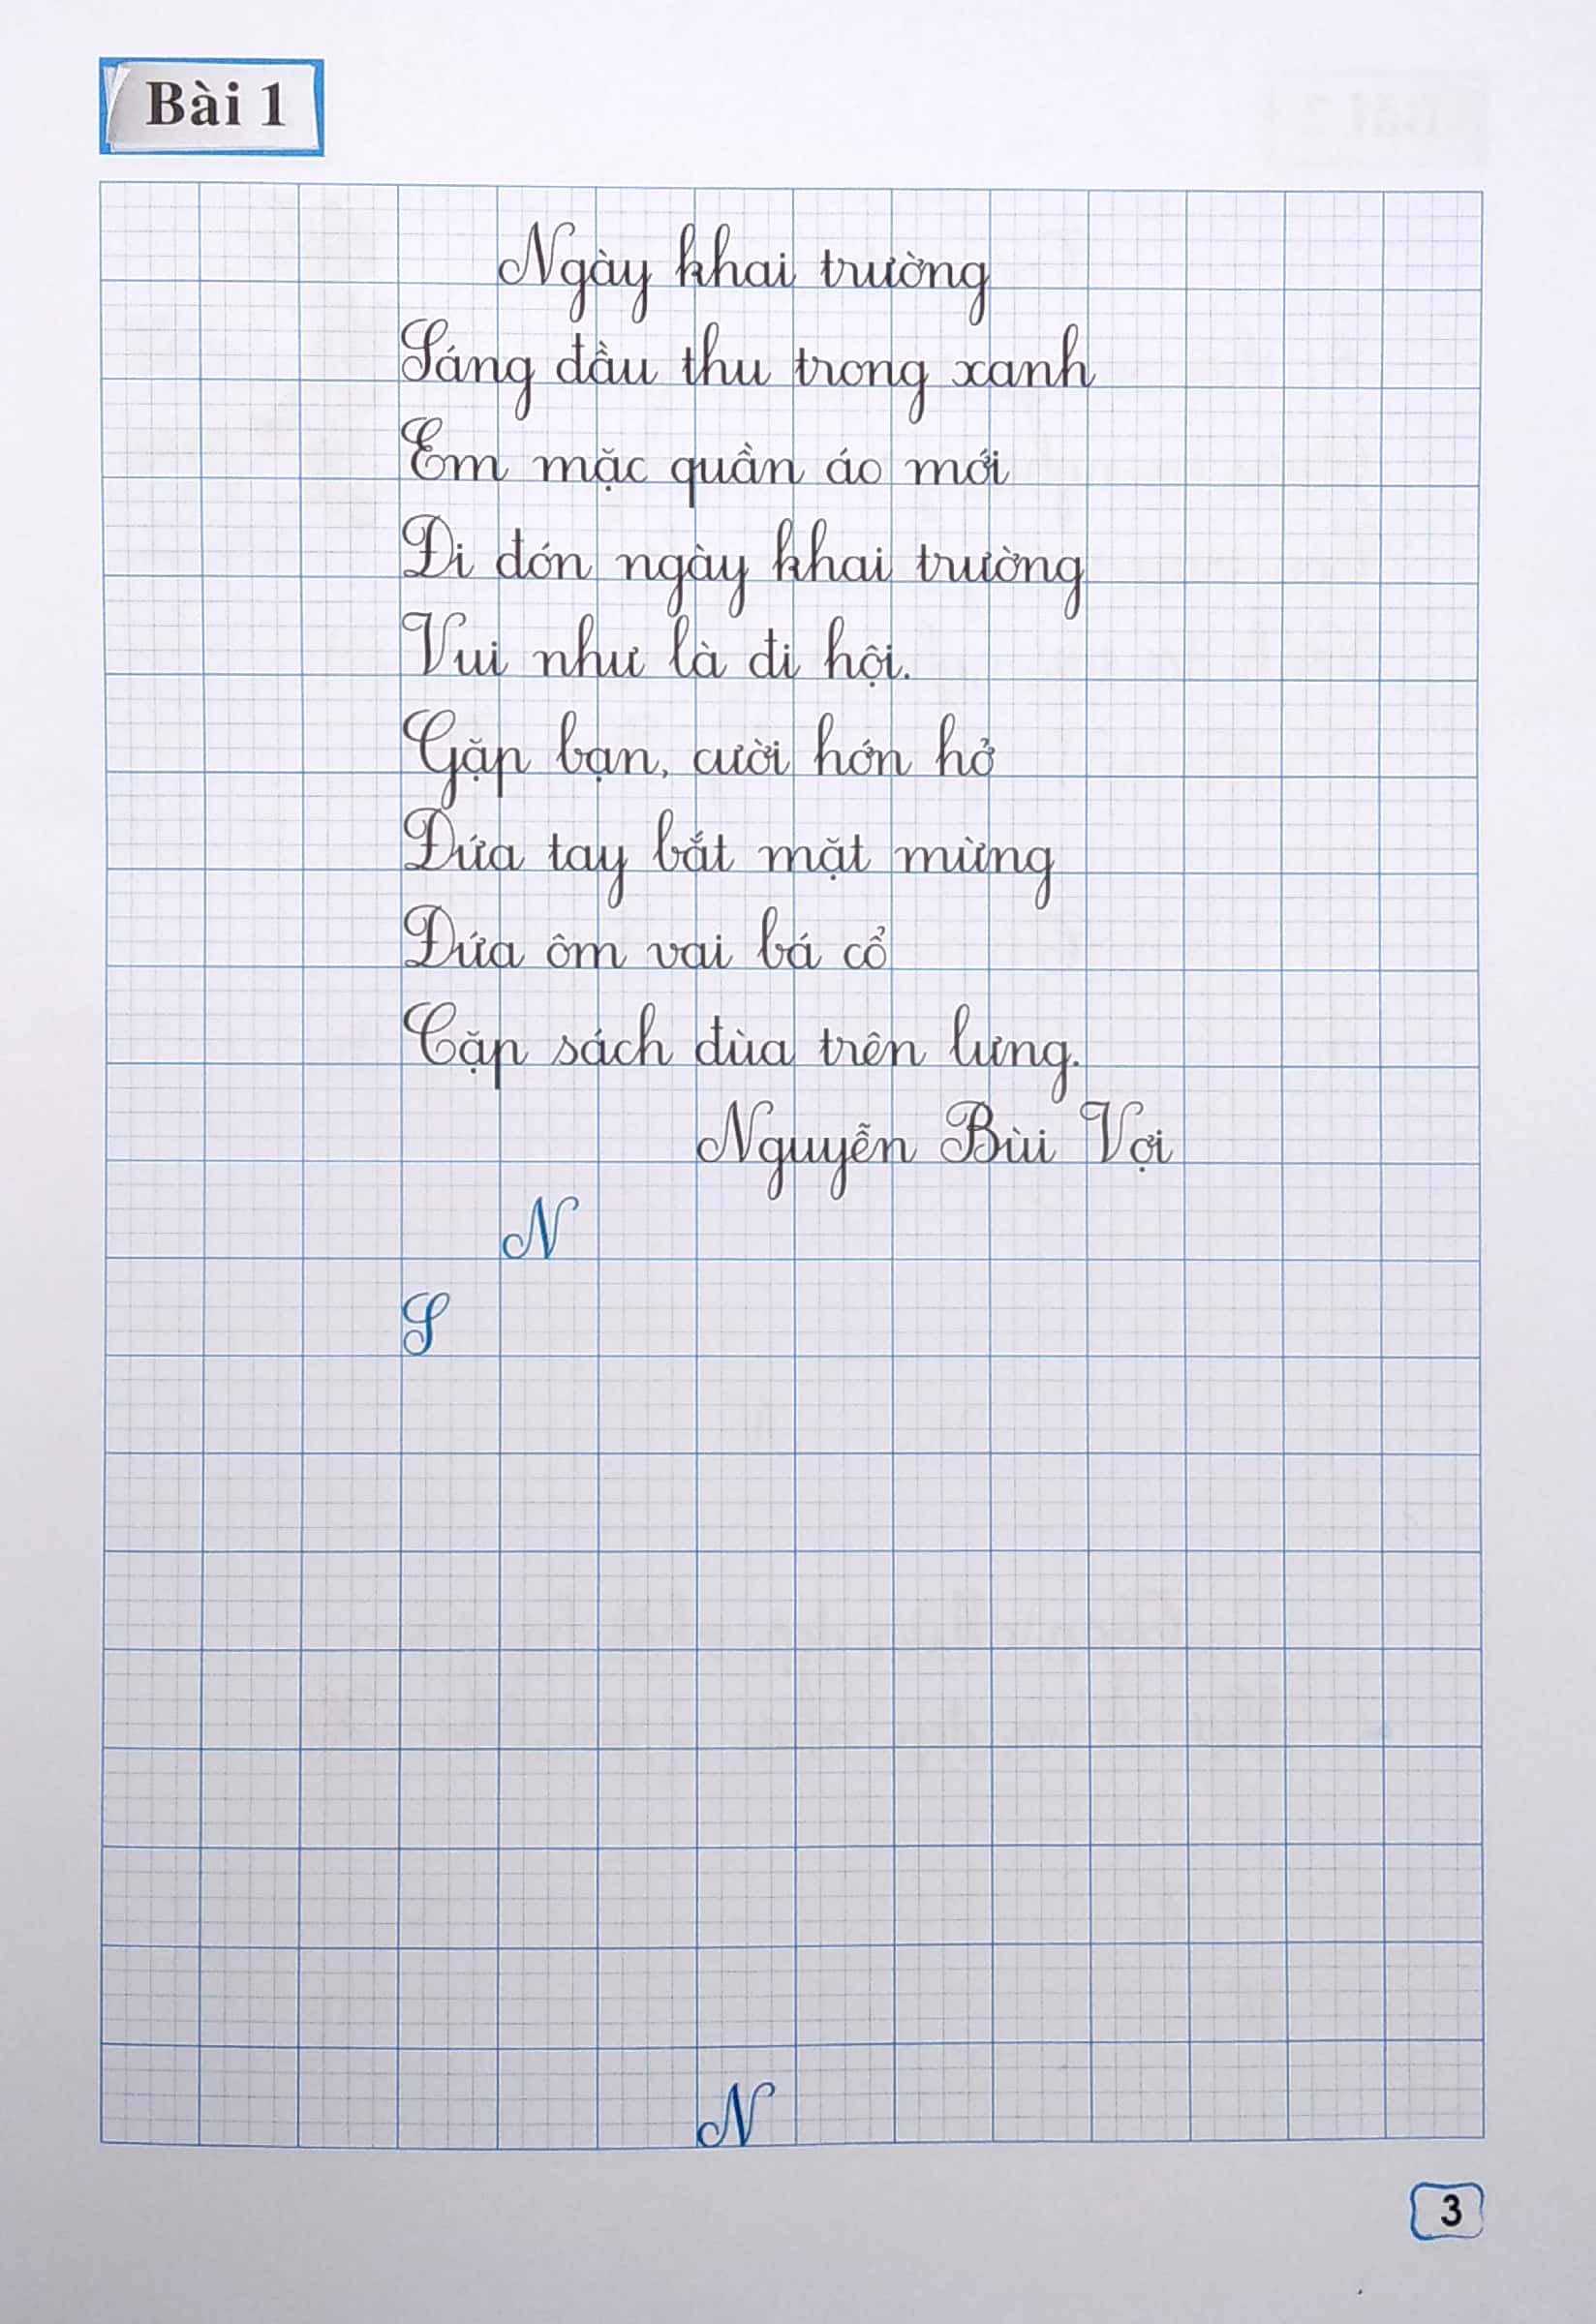 Bài 1
Ngày khai trường
Sáng đầu thu trong xanh
Em mặc quần áo mới
Đi đón ngày khai trường
Vui như là đi hội.
Gặp bạn, cười hớn hở
Đứa tay bắt mặt mừng
Đứa ôm vai bá cổ
Cặp sách đùa trên lưng.
Nguyễn Bùi Vợi
N
S
N
3